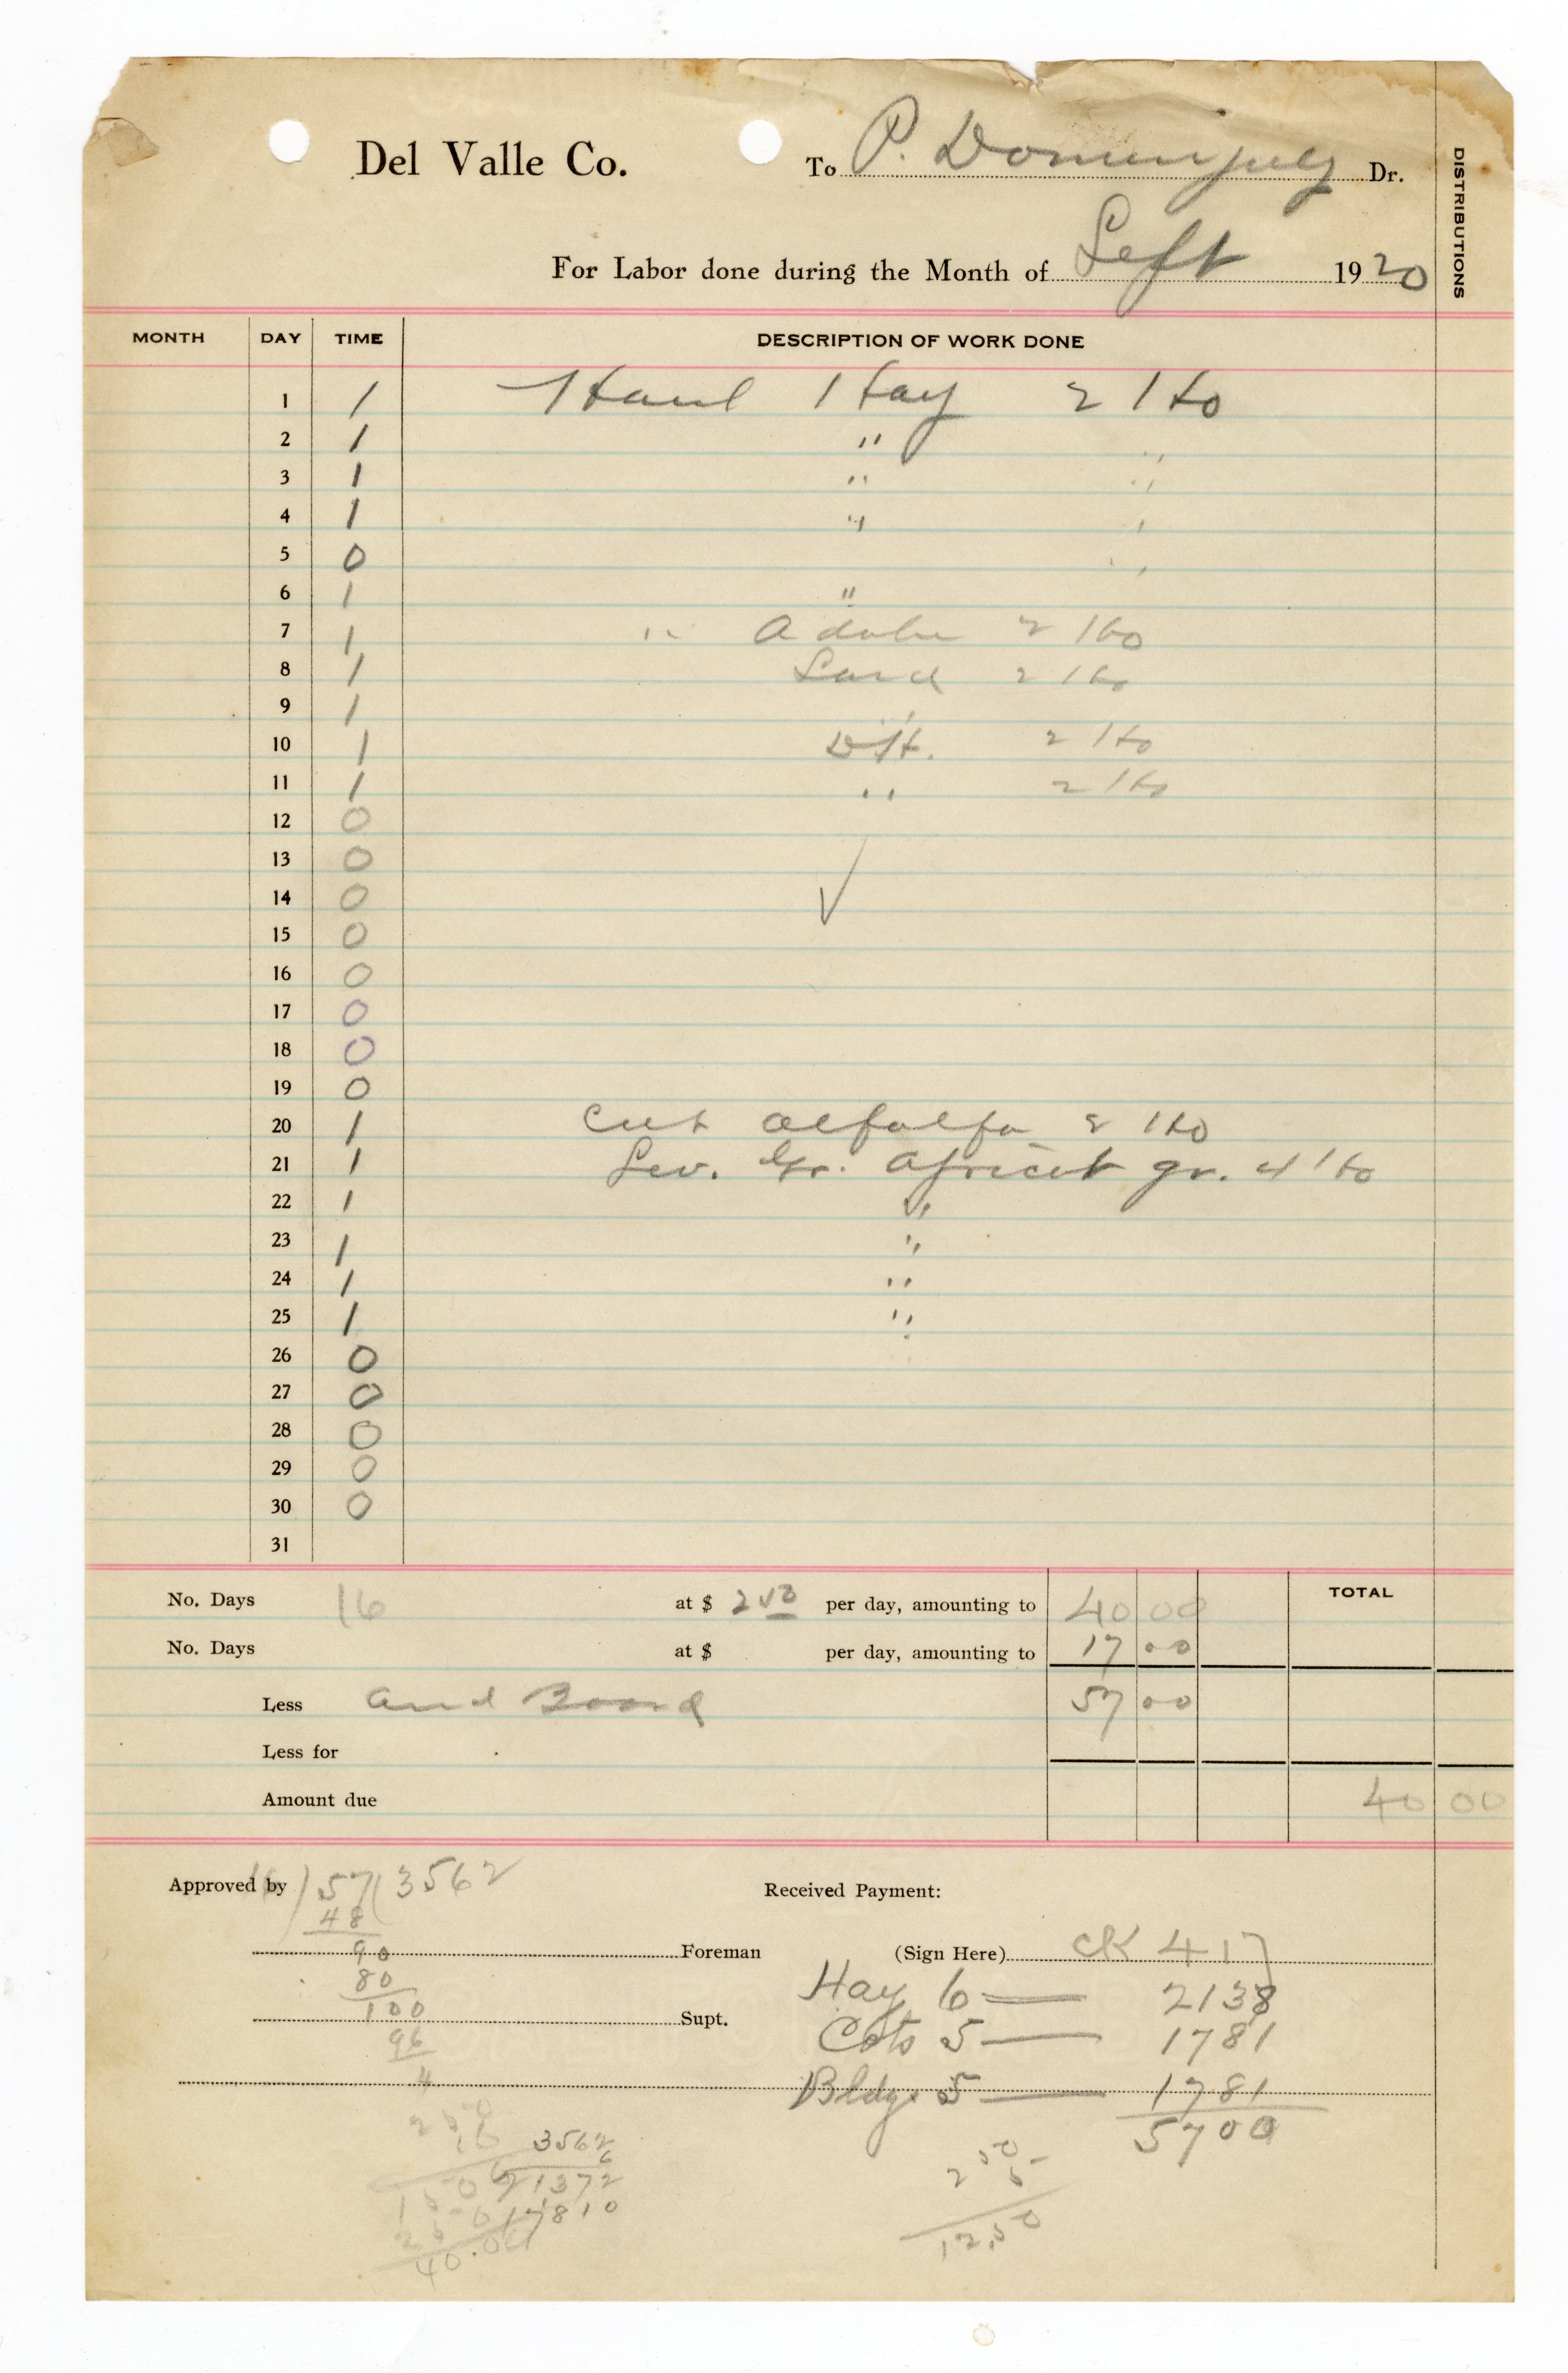 Del Valle Co. To P. Dominguez Dr.
DISTRIBUTIONS
For Labor done during the Month of Sept 1920
MONTH DAY TIME DESCRIPTION OF WORK DONE
1 1 Haul Hay 2 Ho
2 1 " "
3 1 " "
4 1 " "
5 0 "
6 1 "
7 1 " Adobe 2 Ho
8 1 Sand 2 Ho
9 1 "
10 1 2 Ho
11 1 " 2 Ho
12 0
13 0
14 0
15 0
16 0
17 0
18 0
19 0
20 1 Cut alfalfa 2 Ho
21 1 Lev. Gr. Apricot gr. 4 Ho
22 1 "
23 1 "
24 1 "
25 1 "
26 0
27 0
28 0
29 0
30 0
31
TOTAL
No. Days 16 at $ 2 50 per day, amounting to 40 00
No. Days at $ per day, amounting to 17 00
Less and Board 57 00
Less for
Amount due 40 00
Approved by 16 ) 57 ( 3562
Received Payment:
48
90
Foreman (Sign Here) CK 417
80
Hay 6 — 2138
100
Supt.
Cots 5 — 1781
96
4
Bldgs 5 — 1781
5700
2 50
16
3562
6
1500 21372
250 17810
40.00
2 50
5
12.50